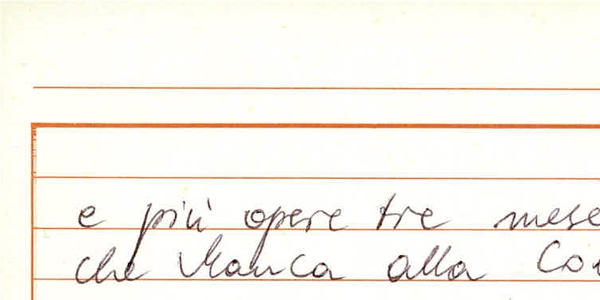 e più opere tre mese
che Manca alla Co